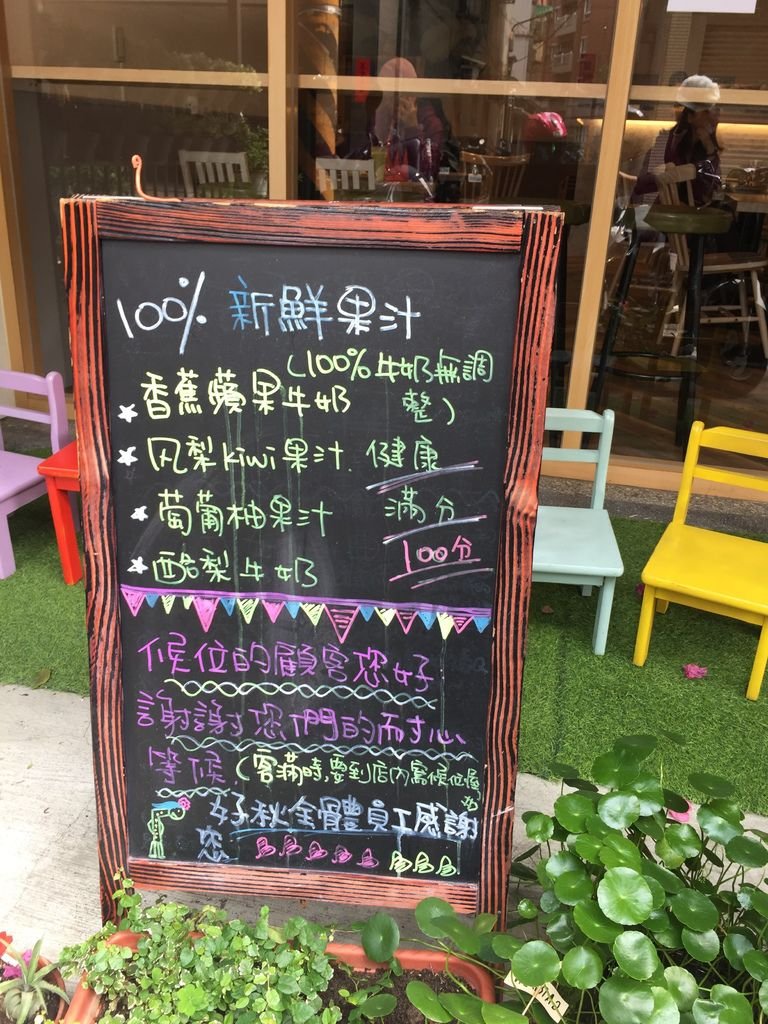 100% 新鮮果汁
香蕉蘋果牛奶 (100%牛奶無調整)
凤梨Kiwi果汁. 健康
葡萄柚果汁 滿分
酪梨牛奶 100分
候位的顧客您好
謝謝您們的耐心
等候 (客滿時,要到店內寫候位喔
好秋全體員工感謝
您